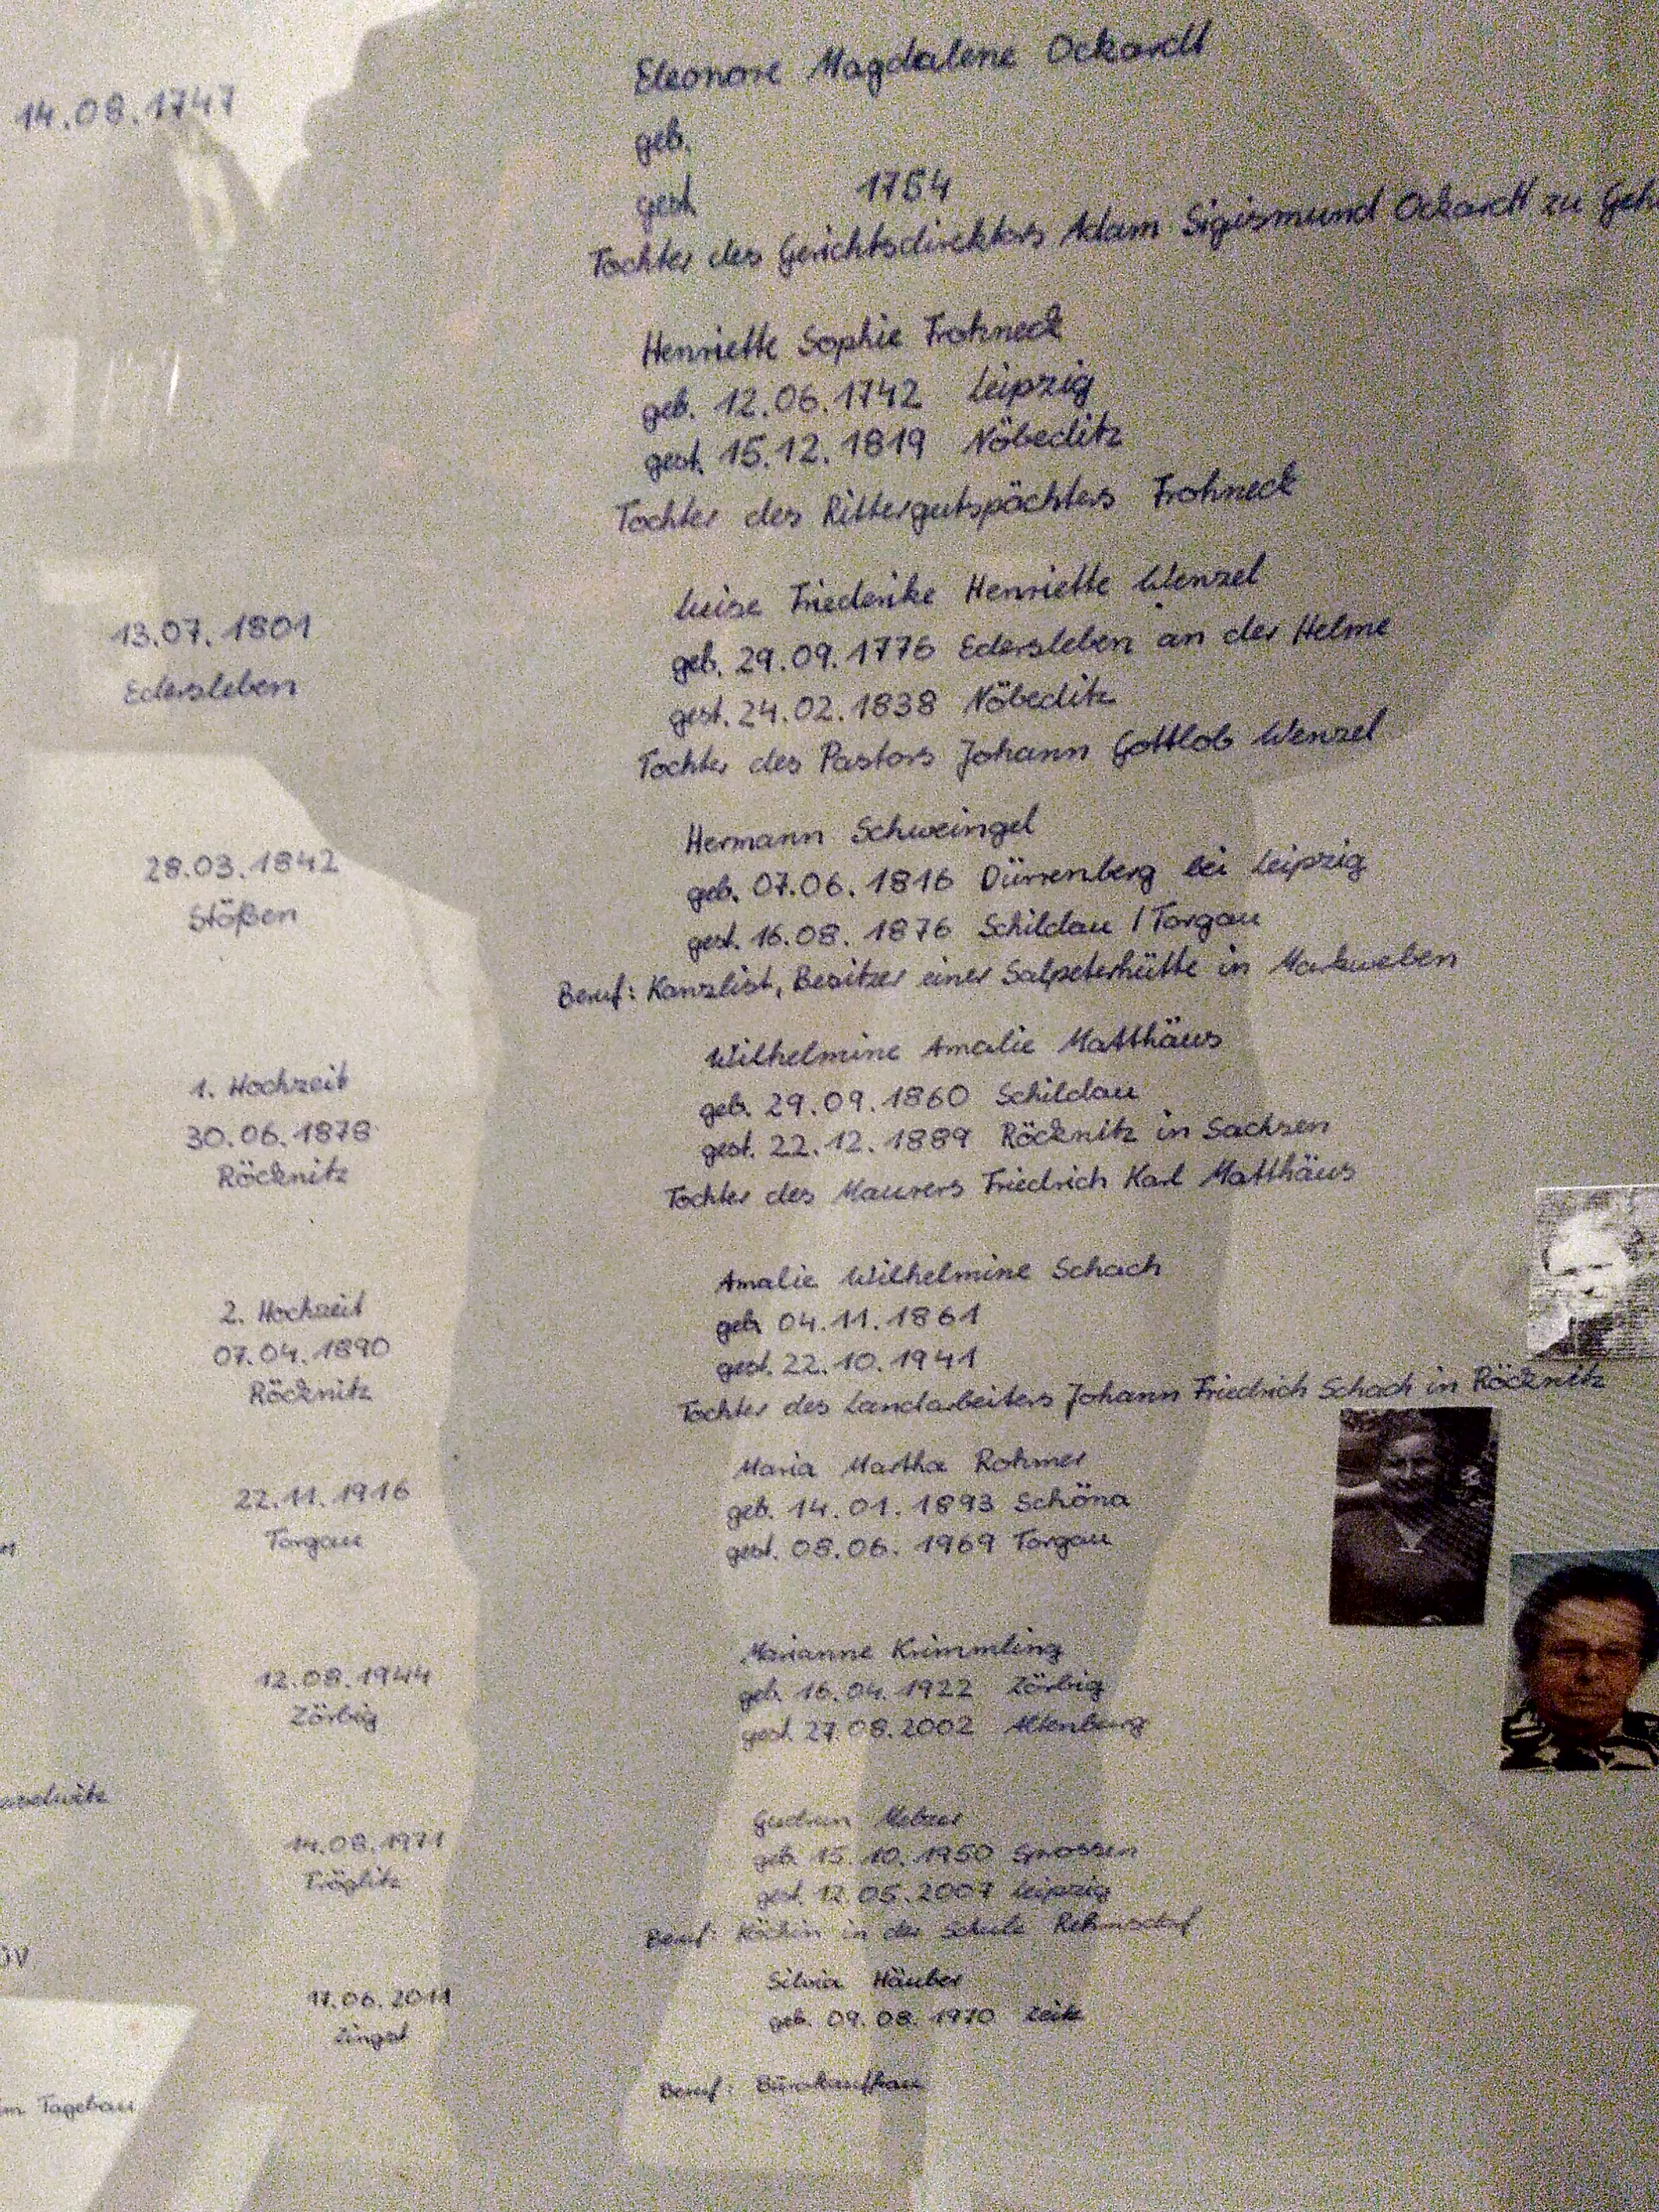 Eleonore Magdalene Ockardt
14.08.1747
geb.
gest. 1754
Tochter des Gerichtsdirektors Adam Sigismund Ockardt zu
Henriette Sophie Frohneck
geb. 12.06.1742 Leipzig
gest. 15.12.1819 Nöbeditz
Tochter des Rittergutspächters Frohneck
Luise Friederike Henriette Wenzel
13.07.1801
geb. 29.09.1776 Edersleben an der Helme
Edersleben
gest. 24.02.1838 Nöbeditz
Tochter des Pastors Johann Gottlob Wenzel
Hermann Schweingel
28.03.1842
geb. 07.06.1816 Dürrenberg bei Leipzig
Stößen
gest. 16.08.1876 Schildau / Torgau
Beruf: Kanzlist, Besitzer einer Salpeterhütte in Markweben
Wilhelmine Amalie Matthäus
1. Hochzeit
geb. 29.09.1860 Schildau
30.06.1878
gest. 22.12.1889 Röcknitz in Sachsen
Röcknitz
Tochter des Maurers Friedrich Karl Matthäus
Amalie Wilhelmine Schach
2. Hochzeit
geb. 04.11.1861
07.04.1890
gest. 22.10.1941
Röcknitz
Tochter des Landarbeiters Johann Friedrich Schach in Röcknitz
Maria Martha Rohmer
22.11.1916
geb. 14.01.1893 Schöna
Torgau
gest. 08.06.1969 Torgau
Marianne Krimmling
12.08.1944
geb. 16.04.1922 Zörbig
Zörbig
gest. 27.08.2002 Altenburg
Gudrun Melzer
14.08.1971
geb. 15.10.1950 Spossen
Tröglitz
gest. 12.05.2007 Leipzig
Beruf: Köchin in der Schule Rehmsdorf
Silvia Häuber
17.06.2011
geb. 09.08.1970 Zeitz
Zingst
Beruf: Bürokauffrau
Tagebau